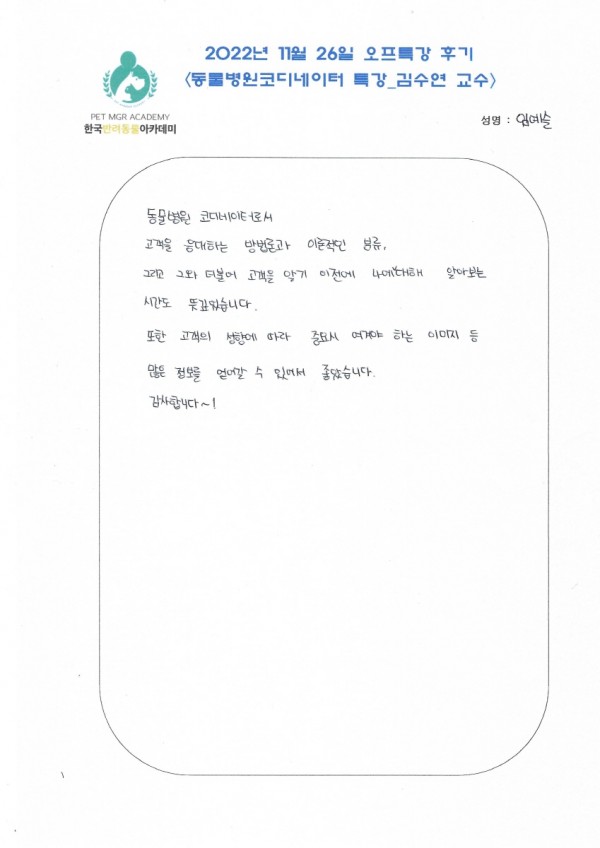 2022년 11월 26일 오프특강 후기
<동물병원코디네이터 특강_김수연 교수>
PET MGR ACADEMY
한국반려동물아카데미
성명 : 임예슬
동물병원 코디네이터로서
고객을 응대하는 방법론과 이론적인 분류,
그리고 그와 더불어 고객을 알기 이전에 나에대해 알아보는
시간도 뜻깊었습니다.
또한 고객의 성향에 따라 중요시 여겨야 하는 이미지 등
많은 정보를 얻어갈 수 있어서 좋았습니다.
감사합니다~!